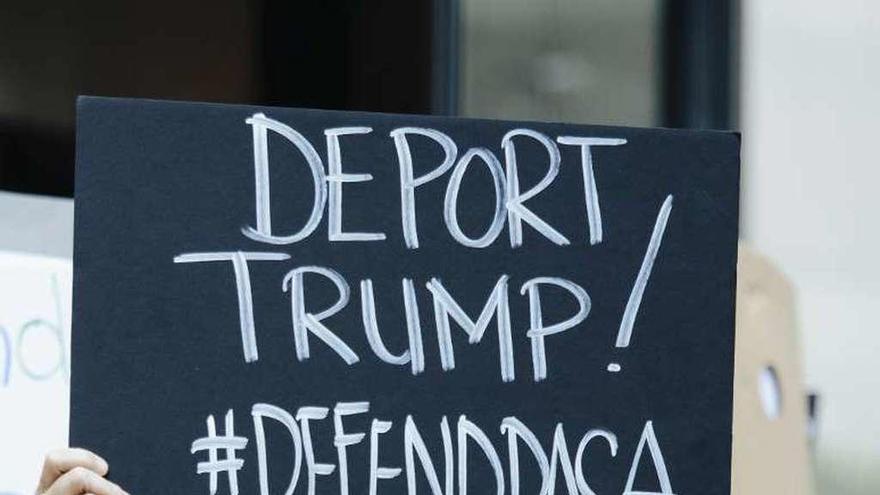 DEPORT
TRUMP!
#DEFENDDACA
nd